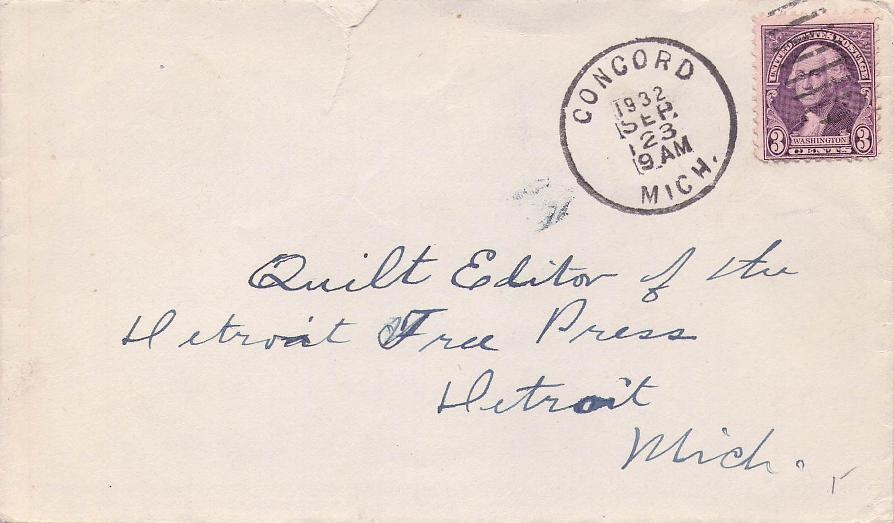 CONCORD
1932
SEP
23
9 AM
MICH.
UNITED STATES POSTAGE
3 WASHINGTON 3
CENTS
Quilt Editor of the
Detroit Free Press
Detroit
Mich.